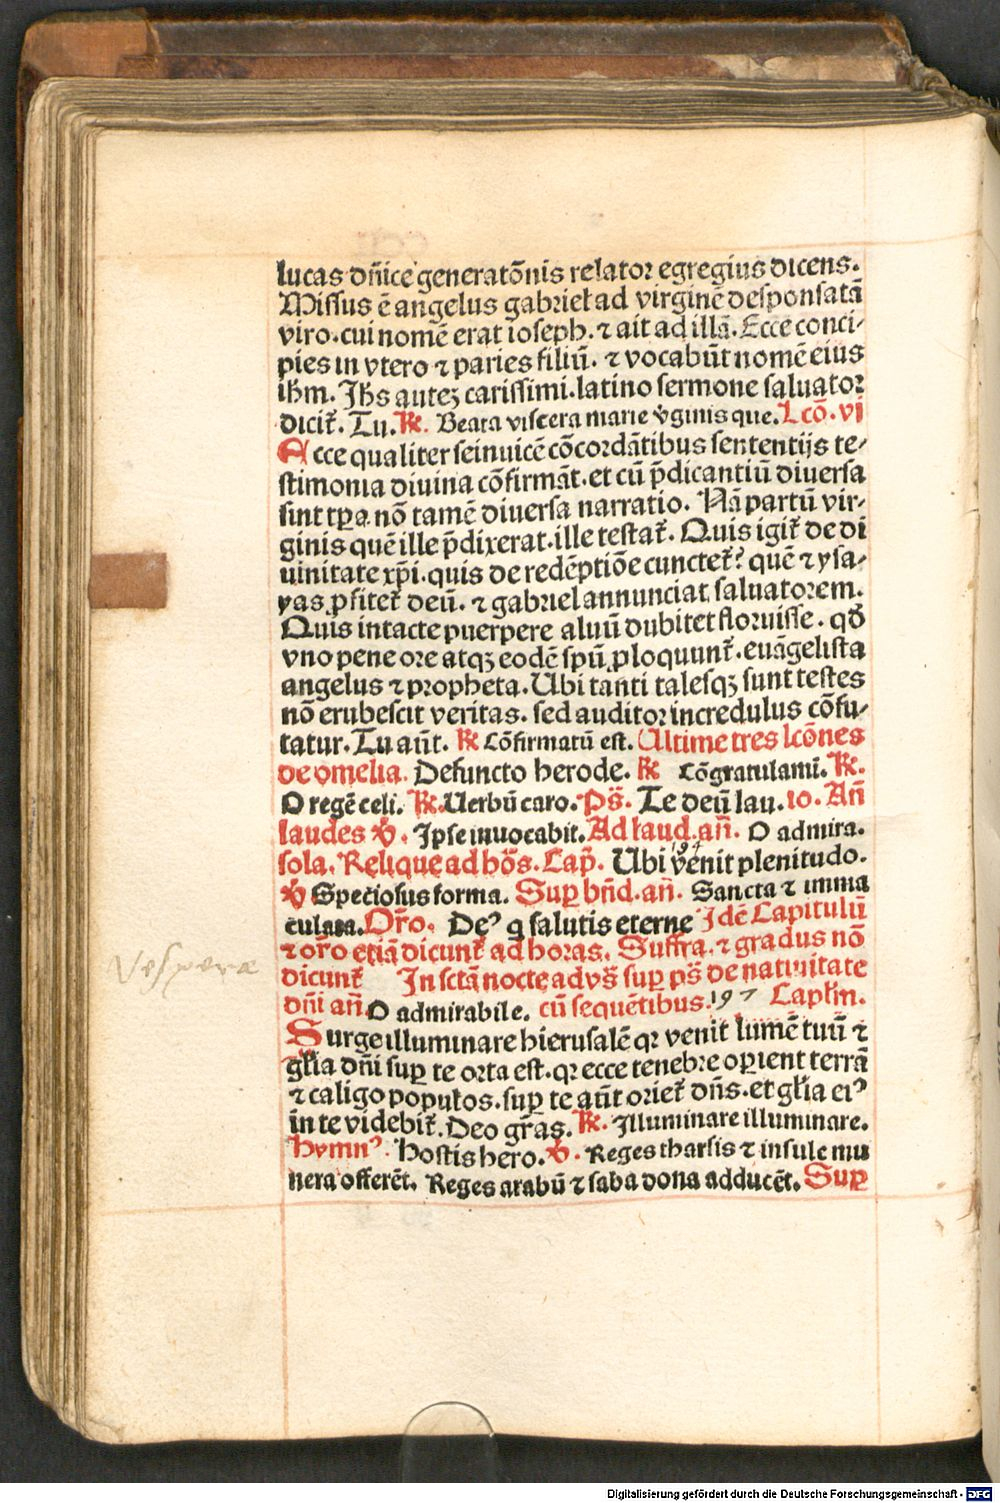 lucas dñice generatõnis relator egregius dicens.
Missus ē angelus gabriel ad virginē desponsatā
viro. cui nomē erat ioseph. ⁊ ait ad illā. Ecce conci-
pies in vtero ⁊ paries filiū. ⁊ vocabūt nomē eius
ihm. Jhs autez carissimi. latino sermone saluator
dicit̄. Tu. R̄. Beata viscera marie v̄ginis que. Lcõ. vi
Ecce qualiter seinuicē cõcordātibus sententijs te-
stimonia diuina cõfirmāt. et cū p̄dicantiū diuersa
sint tꝑa. nõ tamē diuersa narratio. Nā partū vir-
ginis quē ille p̄dixerat. ille testat̄. Quis igit̄ de di
uinitate xp̄i. quis de redēptiõe cunctet̄? quē ⁊ ysa-
yas ꝓfitet̄ deū. ⁊ gabriel annunciat saluatorem.
Quis intacte puerpere aluū dubitet floruisse. qđ
vno pene ore atqꝫ eodē spū ꝓloquunt̄. euāgelista
angelus ⁊ propheta. Ubi tanti talesqꝫ sunt testes
nõ erubescit veritas. sed auditor incredulus cõfu-
tatur. Tu aūt. R̄ Cõfirmatū est. Ultime tres lcõnes
de omelia. Defuncto herode. R̄ Cõgratulami. R̄.
O regē celi. R̄. Uerbū caro. Ps̄. Te deū lau. 10. Añ
laudes v̄. Ipse inuocabit. Ad laud. añ. O admira.
194
sola. Relique ad hõs. Cap̄. Ubi venit plenitudo.
v̄ Speciosus forma. Suꝑ bn̄d. añ. Sancta ⁊ imma
culata. Or̄o. Deꝰ q salutis eterne Idē Capitulū
⁊ or̄o etiā dicunt̄ ad horas. Suffra. ⁊ gradus nõ
Vesperæ
dicunt̄ In sctā nocte advs̄ suꝑ ps̄ de natiuitate
dñi añ. O admirabile. cū sequētibus. 197 Caplm.
Surge illuminare hierusalē qꝛ venit lumē tuū ⁊
gl̄ia dñi suꝑ te orta est. qꝛ ecce tenebre operient terrā
⁊ caligo populos. suꝑ te aūt oriet̄ dñs. et gl̄ia eiꝰ
in te videbit̄. Deo gr̄as. R̄. Illuminare illuminare.
Hymnꝰ. Hostis hero. v̄. Reges tharsis ⁊ insule mu
nera offerēt. Reges arabū ⁊ saba dona adducēt. Suꝑ
Digitalisierung gefördert durch die Deutsche Forschungsgemeinschaft - DFG